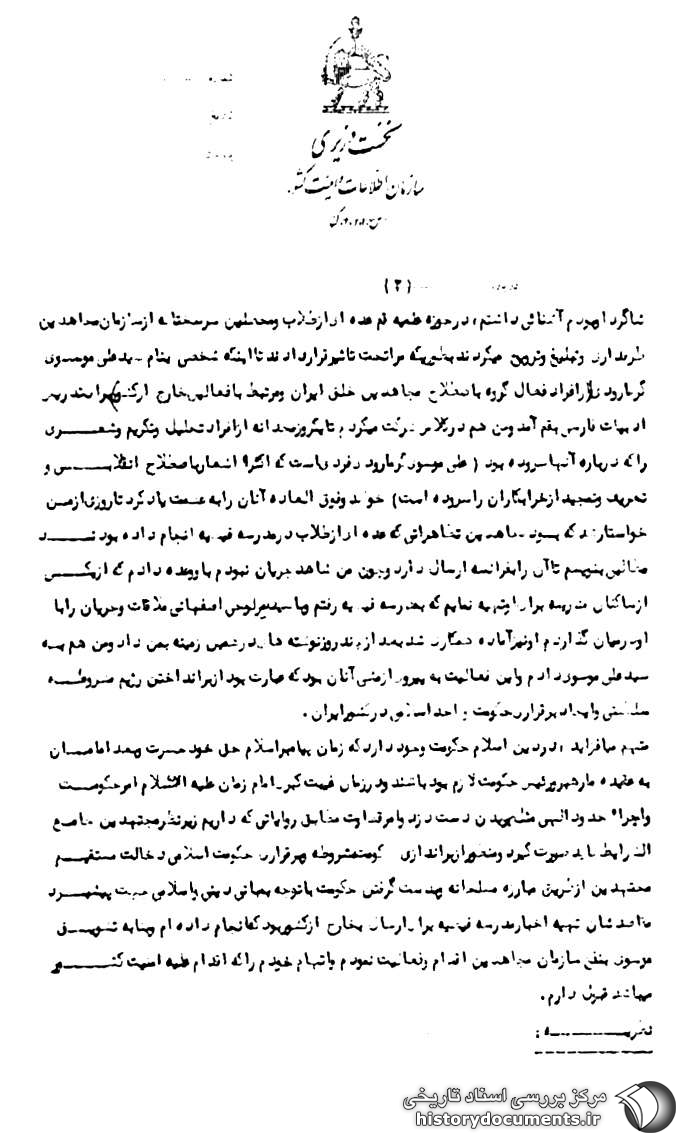 شماره
تاریخ
پیوست
نخست وزیری
سازمان اطلاعات و امنیت کشور
س.ا.و.ا.ک
(۲)
شاگرد او بودم آشنائی داشتم، در حوزه علمیه قم عده ای از طلاب و محصلین سرسختانه از سازمان مجاهدین
طرفداری و تبلیغ و ترویج میکردند بطوریکه مرا تحت تاثیر قرار دادند تا اینکه شخصی بنام سید علی موسوی
گرمارودی از افراد فعال گروه باصطلاح مجاهدین خلق ایران و مرتبط با فعالین خارج از کشور برای تدریس
ادبیات فارسی بقم آمد و من هم در کلاس شرکت میکردم تا یکروز مجدانه از افراد تجلیل و تکریم و شعری
را که درباره آنها سروده بود ( علی موسوی گرمارودی فردی است که اکثرا اشعار باصطلاح انقلابی و
تعریف و تمجید از خرابکاران را سروده است) خواند و فوق العاده آنان را به عظمت یاد کرد تا روزی از من
خواستار شد که پیرامون تظاهراتی که عده ای از طلاب در مدرسه فیضیه انجام داده بودند
مطالبی بنویسم تا آن را بفرانسه ارسال دارد و چون من شاهد جریان نبودم باو وعده دادم که از یکی
از ساکنان مدرسه برای او تهیه نمایم که بمدرسه فیضیه رفتم و با سید اصفهانی ملاقات و جریان را با
او درمیان گذاردم او نیز آماده همکاری شد بعد از چند روز نوشته هایی در همین زمینه بمن داد و من هم به
سید علی موسوی دادم و این فعالیت به پیروی از مشی آنان بود که عبارت بود از برانداختن رژیم مشروطه
سلطنتی و ایجاد و برقراری حکومت واحد اسلامی در کشور ایران .
متهم میافزاید : در دین اسلام حکومت وجود دارد که زمان پیامبر اسلام حق خود حضرت و بعد امامان
به عقیده ما رهبر و رئیس حکومت لازم بود باشند و در زمان غیبت کبری امام زمان علیه السلام امر حکومت
و اجراء حدود الهی دست دزد و امر قضاوت مطابق روایاتی که داریم زیر نظر مجتهدین جامع
الشرایط باید صورت گیرد و منظور از براندازی حکومت مشروطه و برقراری حکومت اسلامی دخالت مستقیم
مجتهدین از طریق مبارزه مسلحانه و بدست گرفتن حکومت با توجه بمبانی دینی و اسلامی جهت پیشبرد
مقاصدشان تهیه اخبار مدرسه فیضیه برای ارسال بخارج از کشور بود که انجام داده ام و بنا به تشویق
موسوی بنفع سازمان مجاهدین اقدام و فعالیت نمودم و اتهام خودم را که اقدام علیه امنیت کشور
میباشد قبول دارم.
نظریه :
مرکز بررسی اسناد تاریخی
historydocuments.ir